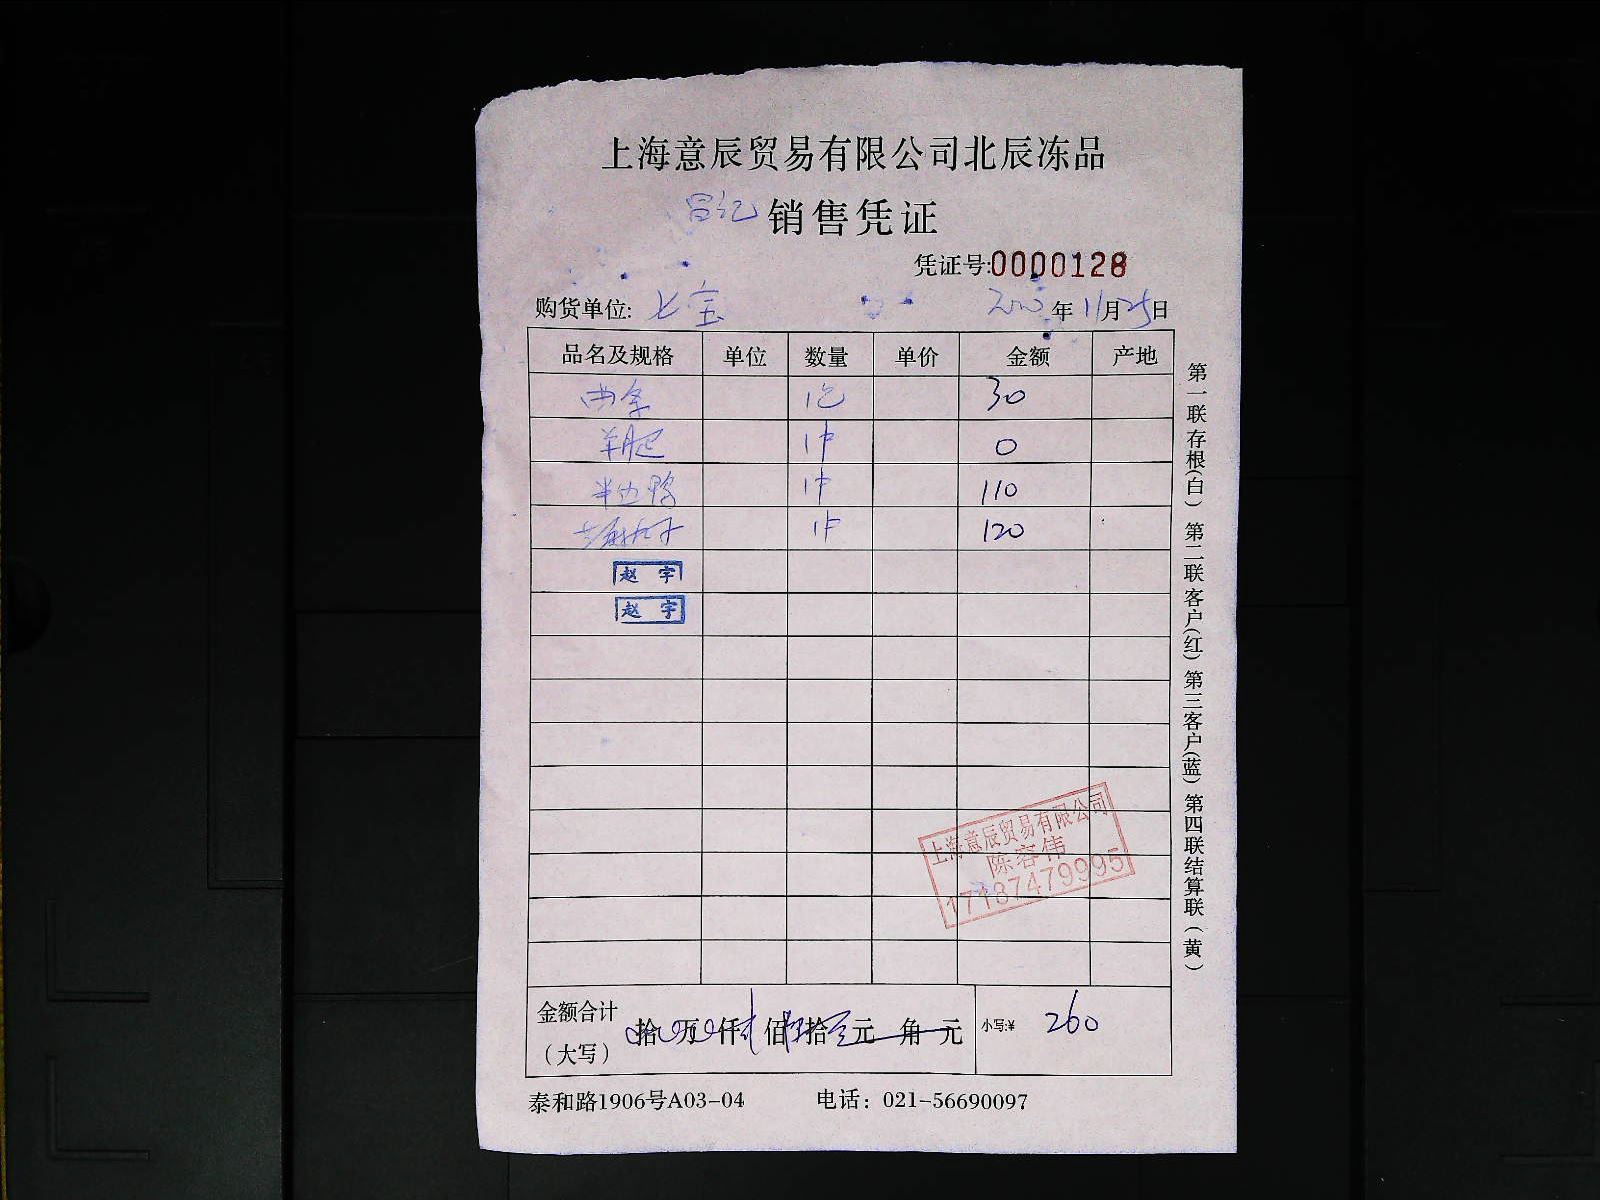 上海意辰贸易有限公司北辰冻品
昌纪 销售凭证
凭证号:0000128
购货单位: 七宝 年 11月25日
品名及规格 单位 数量 单价 金额 产地
1包 30
羊肥 1件 0
半边鸭 1件 110
1件 120
赵宇
赵宇
上海意辰贸易有限公司
陈容伟
17187479995
金额合计(大写) 拾 万 仟 佰 拾 元 角 元 小写:¥ 260
泰和路1906号A03-04 电话：021-56690097
第一联存根(白) 第二联客户(红) 第三客户(蓝) 第四联结算联(黄)